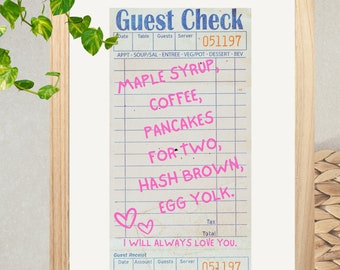 Guest Check
Date Table Guests Server 051197
APPT - SOUP/SAL - ENTREE - VEG/POT - DESSERT - BEV
MAPLE SYRUP,
COFFEE,
PANCAKES
FOR TWO,
HASH BROWN,
EGG YOLK.
Tax
Total
I WILL ALWAYS LOVE YOU.
Guest Receipt
Date Account Guests Server 051197